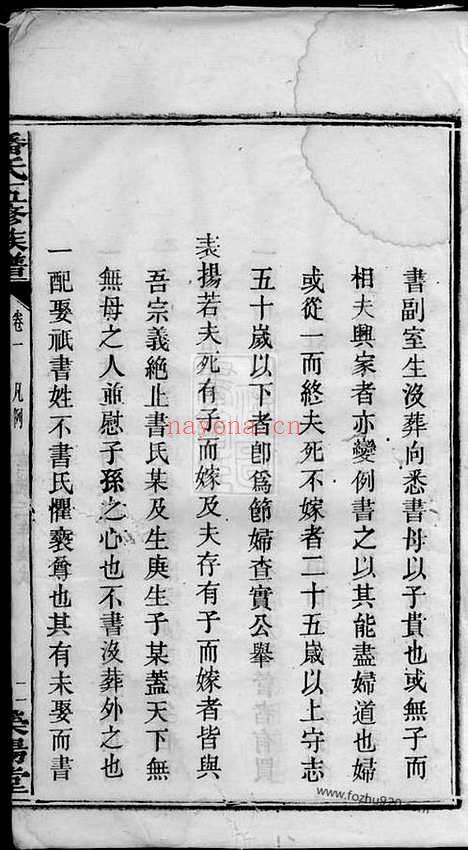 書副室生沒葬向悉書母以子貴也或無子而
相夫興家者亦變例書之以其能盡婦道也婦
或從一而終夫死不嫁者二十五歲以上守志
五十歲以下者卽爲節婦查實公舉
表揚若夫死有子而嫁及夫存有子而嫁者皆與
吾宗義絶止書氏某及生庚生子某蓋天下無
無母之人並慰子孫之心也不書沒葬外之也
一配娶祇書姓不書氏懼褻尊也其有未娶而書
潘氏五修族譜
卷一
凡例
二
榮陽堂
nayona.cn
www.fozhu920.com